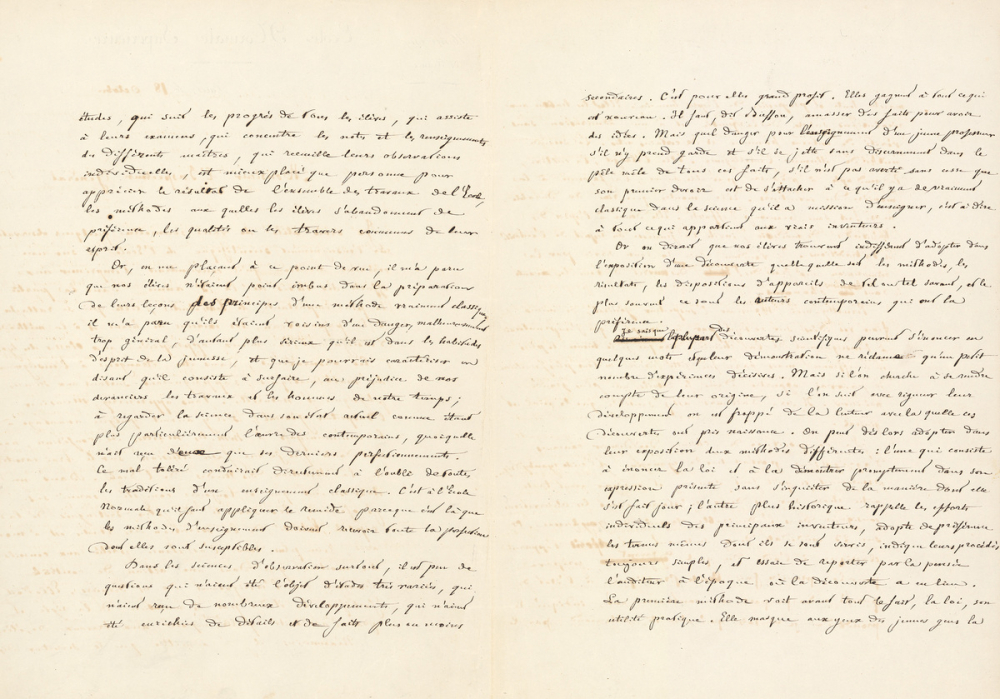 études, qui suit les progrès de tous les élèves, qui assiste
à leurs examens, qui concentre les notes et les renseignements
des différents maîtres, qui recueille leurs observations
individuelles, est mieux placé que personne pour
apprécier le résultat de l'ensemble des travaux de l'École,
les méthodes aux quelles les élèves s'abandonnent de
préférence, les qualités ou les travers communs de leur
esprit.
Or, en me plaçant à ce point de vue, il m'a paru
que nos élèves n'étaient point imbus dans la préparation
de leurs leçons des principes d'une méthode vraiment classique,
il m'a paru qu'ils étaient voisins d'un danger, malheureusement
trop général, d'autant plus sérieux qu'il est dans les habitudes
d'esprit de la jeunesse, et que je pourrais caractériser en
disant qu'il consiste à surfaire, au préjudice de nos
devanciers les travaux et les hommes de notre temps;
à regarder la science dans son état actuel comme étant
plus particulièrement l'œuvre des contemporains, quoiqu'elle
n'ait reçu d'eux que ses derniers perfectionnements.
Ce mal toléré conduirait directement à l'oubli de toutes
les traditions d'un enseignement classique. C'est à l'École
Normale qu'il faut appliquer le remède parce que c'est là que
les méthodes d'enseignement doivent recevoir toute la perfection
dont elles sont susceptibles.
Dans les sciences d'observation surtout, il est peu de
questions qui n'aient été l'objet d'études très variées, qui
n'aient reçu de nombreux développements, qui n'aient
été enrichies de détails et de faits plus ou moins
secondaires. C'est pour elles grand profit. Elles gagnent à tout ce qui
est nouveau. Il faut, dit Buffon, amasser des faits pour avoir
des idées. Mais quel danger pour l'enseignement d'un jeune professeur
s'il n'y prend garde et s'il se jette sans discernement dans le
pêle mêle de tous ces faits, s'il n'est pas averti sans cesse que
son premier devoir est de s'attacher à ce qu'il y a de vraiment
classique dans la science qu'il a mission d'enseigner, c'est à dire
à tout ce qui appartient aux vrais inventeurs.
Or on dirait que nos élèves trouvent indifférent d'adopter dans
l'exposition d'une découverte quelle qu'elle soit les méthodes, les
résultats, les dispositions d'appareils de tel ou tel savant, et le
plus souvent ce sont les auteurs contemporains qui ont la
préférence.
Je sais que la plupart des découvertes scientifiques peuvent s'énoncer en
quelques mots et que leur démonstration ne réclame qu'un petit
nombre d'expériences décisives. Mais si l'on cherche à se rendre
compte de leur origine, si l'on suit avec rigueur leur
développement on est frappé de la lenteur avec laquelle ces
découvertes ont pris naissance. On peut dès lors adopter dans
leur exposition deux méthodes différentes: l'une qui consiste
à énoncer la loi et à la démontrer promptement dans son
expression présente sans s'inquiéter de la manière dont elle
s'est fait jour; l'autre plus historique rappelle les efforts
individuels des principaux inventeurs, adopte de préférence
les termes mêmes dont ils se sont servis, indique leurs procédés
toujours simples, et essaie de reporter par la pensée
l'auditeur à l'époque où la découverte a eu lieu.
La première méthode voit avant tout le fait, la loi, son
utilité pratique. Elle masque aux yeux des jeunes gens la